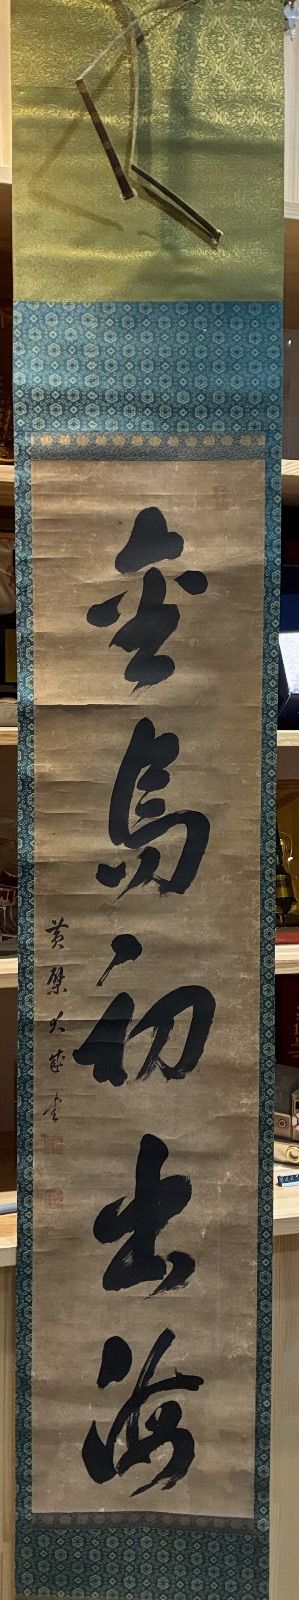 金烏初出海
黄檗大成書